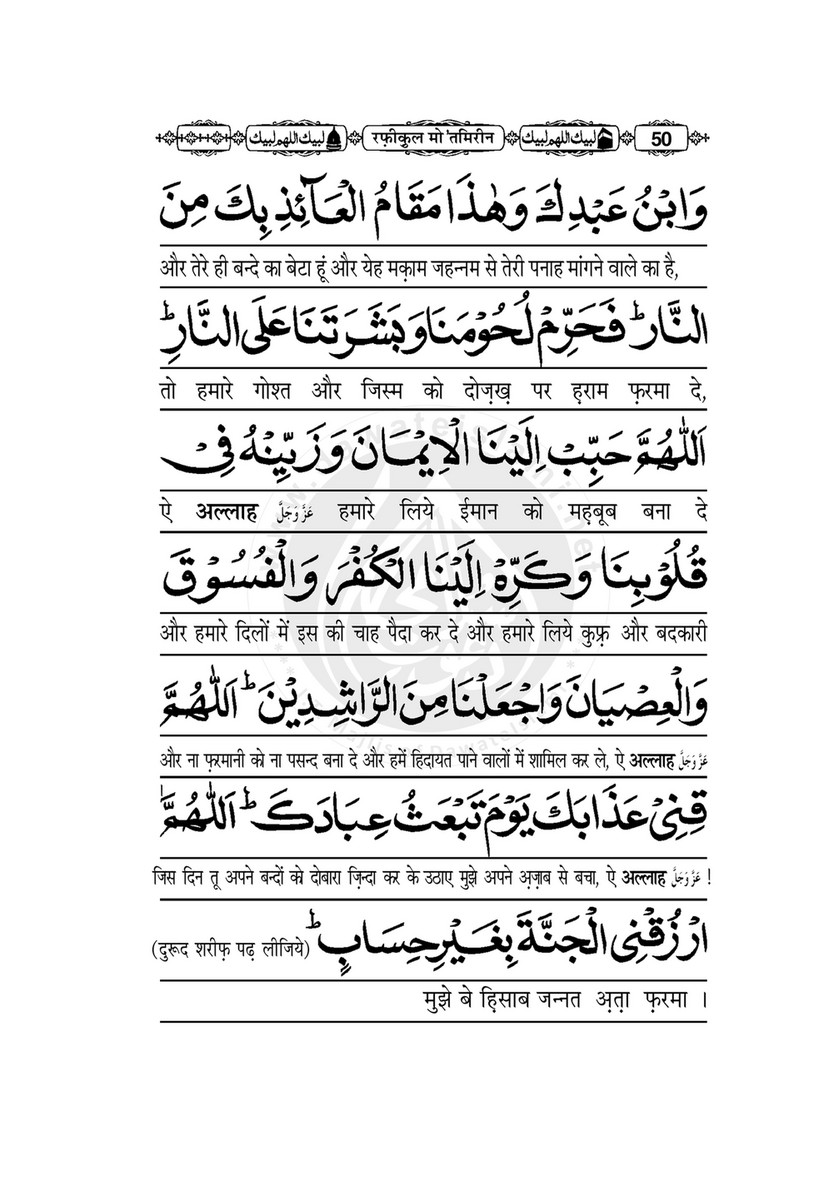 لبيك اللهم لبيك रफ़ीकुल मो 'तमिरीन لبيك اللهم لبيك 50
وَابْنُ عَبْدِكَ وَهٰذَا مَقَامُ الْعَآئِذِ بِكَ مِنَ
और तेरे ही बन्दे का बेटा हूं और येह मक़ाम जहन्नम से तेरी पनाह मांगने वाले का है,
النَّارِ ؕ فَحَرِّمْ لُحُوْمَنَا وَبَشَرَتَنَا عَلَى النَّارِ ؕ
तो हमारे गोश्त और जिस्म को दोज़ख़ पर ह़राम फ़रमा दे,
اَللّٰهُمَّ حَبِّبْ اِلَيْنَا الْاِيْمَانَ وَزَيِّنْهُ فِيْ
ऐ अल्लाह عَزَّوَجَلَّ हमारे लिये ईमान को मह़बूब बना दे
قُلُوْبِنَا وَكَرِّهْ اِلَيْنَا الْكُفْرَ وَالْفُسُوْقَ
और हमारे दिलों में इस की चाह पैदा कर दे और हमारे लिये कुफ़्र और बदकारी
وَالْعِصْيَانَ وَاجْعَلْنَا مِنَ الرَّاشِدِيْنَ ؕ اَللّٰهُمَّ
और ना फ़रमानी को ना पसन्द बना दे और हमें हिदायत पाने वालों में शामिल कर ले, ऐ अल्लाह عَزَّوَجَلَّ
قِنِيْ عَذَابَكَ يَوْمَ تَبْعَثُ عِبَادَكَ ؕ اَللّٰهُمَّ
जिस दिन तू अपने बन्दों को दोबारा ज़िन्दा कर के उठाए मुझे अपने अ़ज़ाब से बचा, ऐ अल्लाह عَزَّوَجَلَّ !
ارْزُقْنِى الْجَنَّةَ بِغَيْرِ حِسَابٍ ؕ (दुरूद शरीफ़ पढ़ लीजिये)
मुझे बे ह़िसाब जन्नत अ़त़ा फ़रमा ।